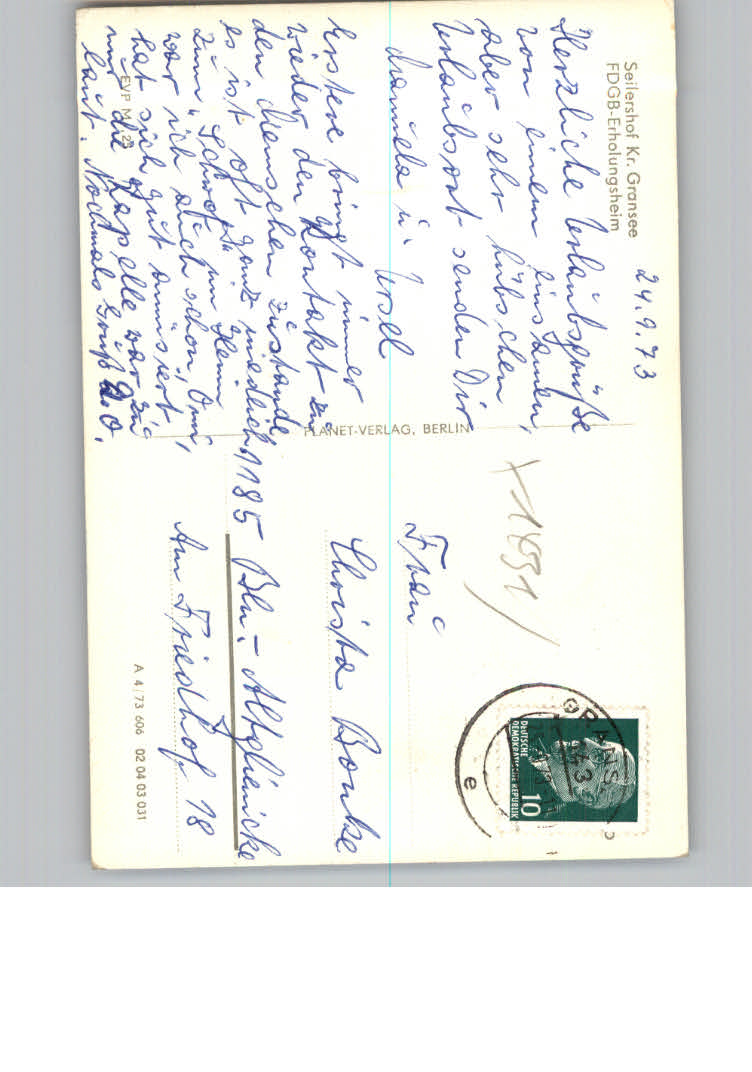 Seilershof Kr. Gransee
FDGB-Erholungsheim
24.9.73
Herzliche Urlaubsgrüße
von einem einsamen,
aber sehr hübschen
Urlaubsort senden Dir
Manuela u. Ursel
Erstere bringt immer
wieder den Kontakt zu
den Menschen zustande
es ist oft ganz niedlich
zum "Schwof" im Heim
war ich auch schon, Omi,
hat sich gut amüsiert
nur die Kapelle war zu
laut. Nochmals Gruß D.O.
EVP M 0,25
PLANET-VERLAG, BERLIN
Frau
Christa Bonke
1185 Bln.-Altglienicke
Am Friedhof 18
A 4/73 606 02 04 03 031
GRANSEE
143
e
DEUTSCHE
DEMOKRATISCHE REPUBLIK
10